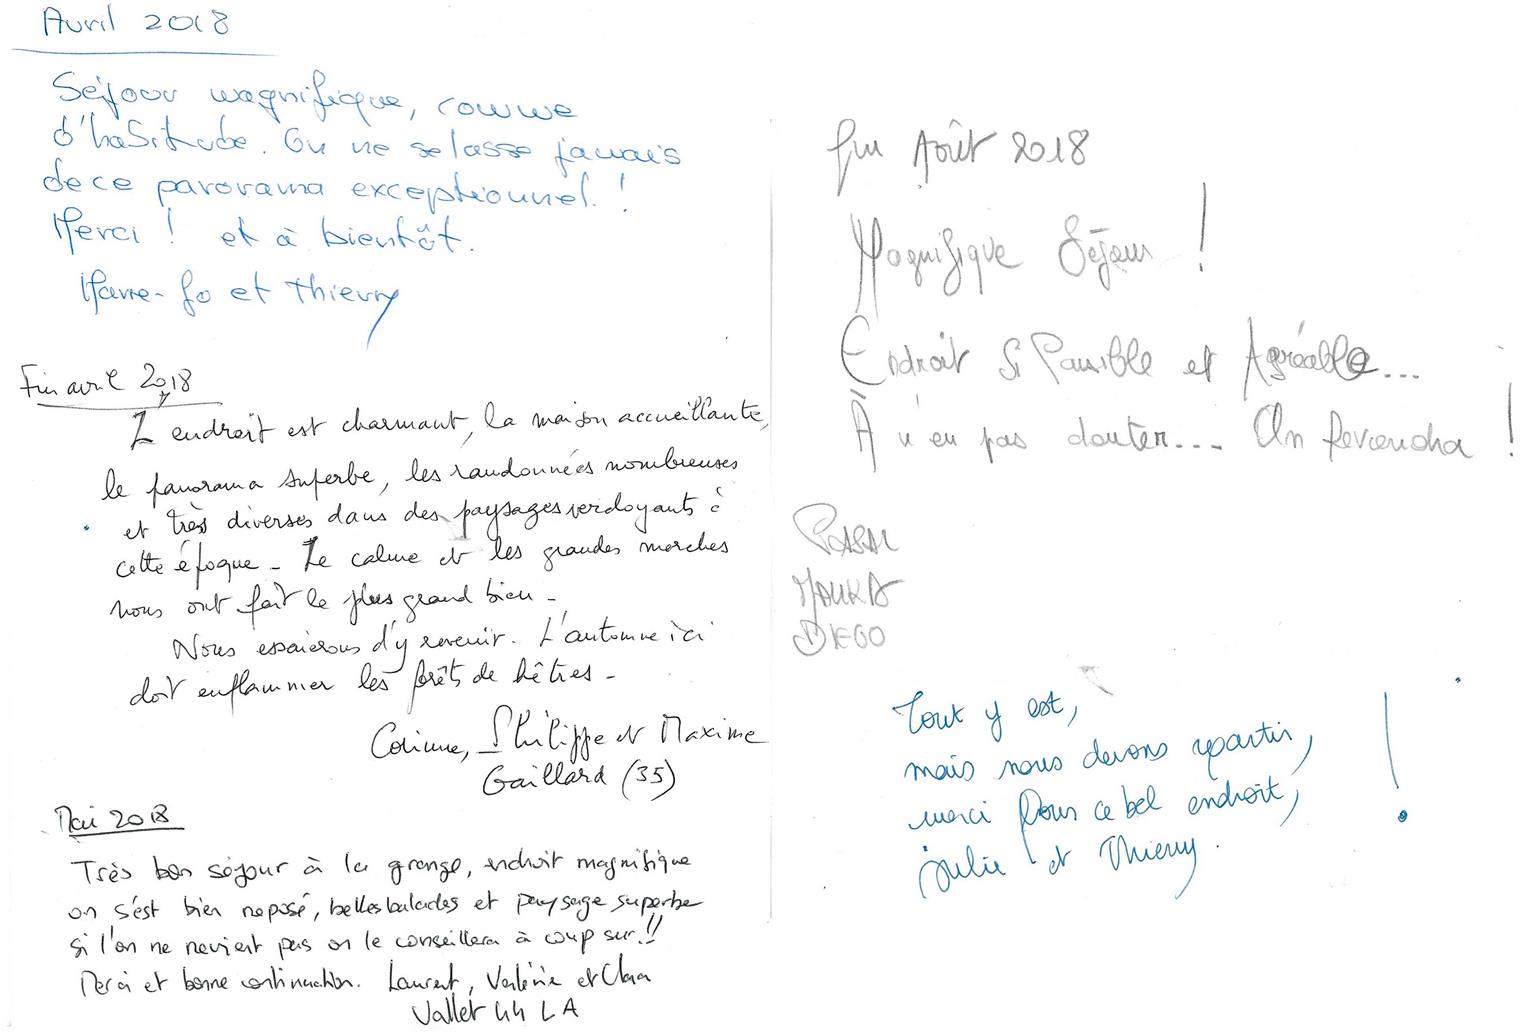 Avril 2018
Séjour magnifique, comme
d'habitude. On ne se lasse jamais
de ce panorama exceptionnel. !
Merci ! et à bientôt.
et Thierry
Fin avril 2018
L'endroit est charmant, la maison accueillante,
le panorama superbe, les randonnées nombreuses
et très diverses dans des paysages verdoyants à
cette époque - Le calme et les grandes marches
nous ont fait le plus grand bien -
Nous essaierons d'y revenir. L'automne ici
doit enflammer les forêts de hêtres -
Corinne, Philippe et Maxime
Gaillard (35)
Mai 2018
Très bon séjour à la grange, endroit magnifique
on s'est bien reposé, belles balades et paysage superbe
si l'on ne revient pas on le conseillera à coup sur !!
Merci et bonne continuation. Laurent, Valérie et Clara
Vallet 44 L A
fin Août 2018
Magnifique Séjour !
Endroit si Paisible et Agréable...
À n'en pas douter... On Reviendra !
DIEGO
Tout y est,
mais nous devons repartir,
merci Pour ce bel endroit, !
Julie et Thierry.